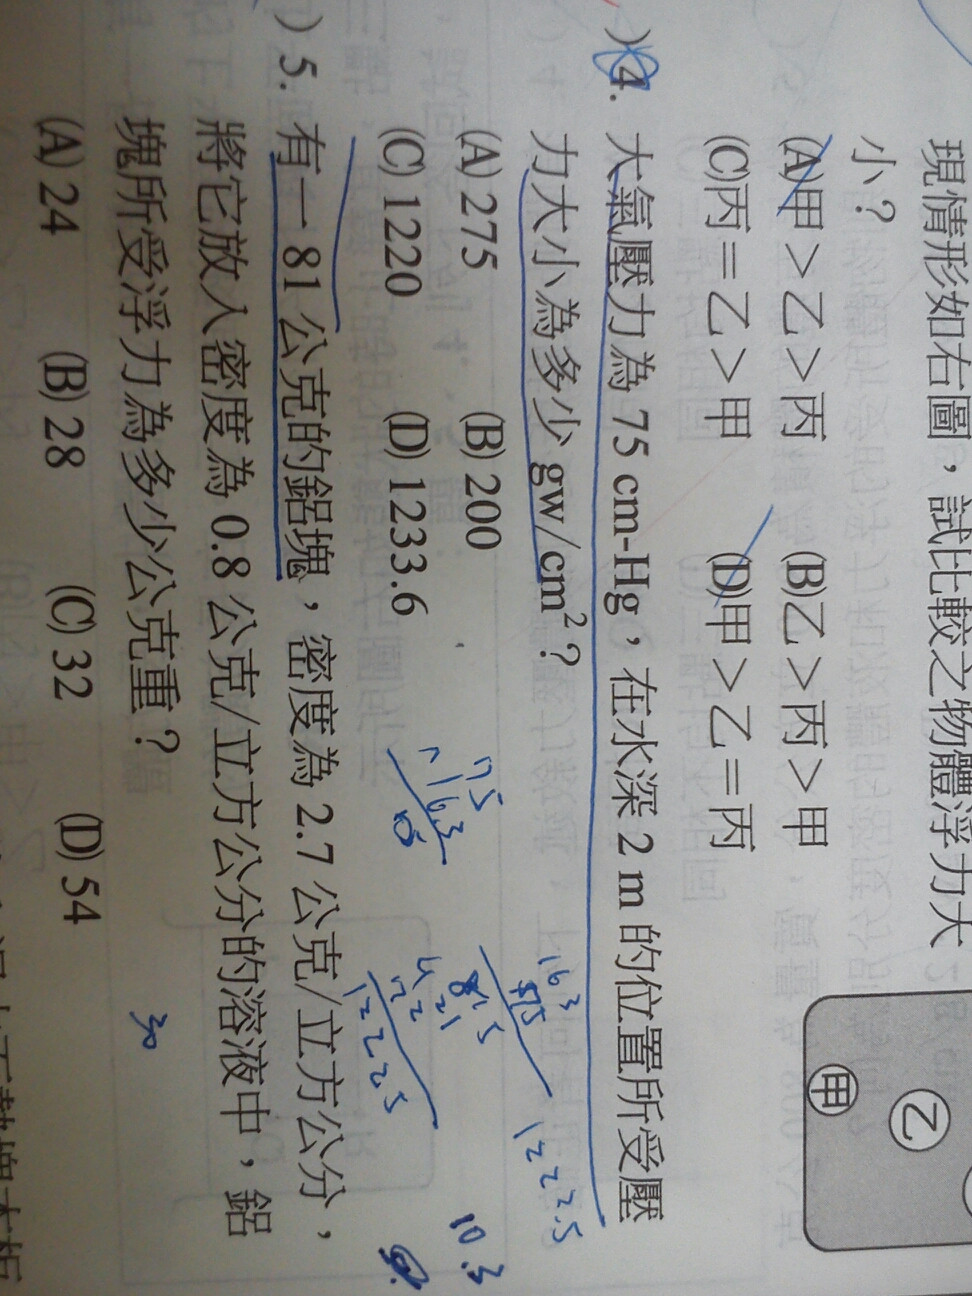 現情形如右圖，試比較之物體浮力大
小？
(A)甲＞乙＞丙 (B)乙＞丙＞甲
(C)丙＝乙＞甲 (D)甲＞乙＝丙
甲
乙
)4. 大氣壓力為 75 cm-Hg，在水深 2 m 的位置所受壓
力大小為多少 gw/cm²？
(A) 275 (B) 200
(C) 1220 (D) 1233.6
75
16.3
163
75
815
1222.5
12225
10.3
)5. 有一 81 公克的鋁塊，密度為 2.7 公克/立方公分，
將它放入密度為 0.8 公克/立方公分的溶液中，鋁
塊所受浮力為多少公克重？
30
(A) 24 (B) 28 (C) 32 (D) 54